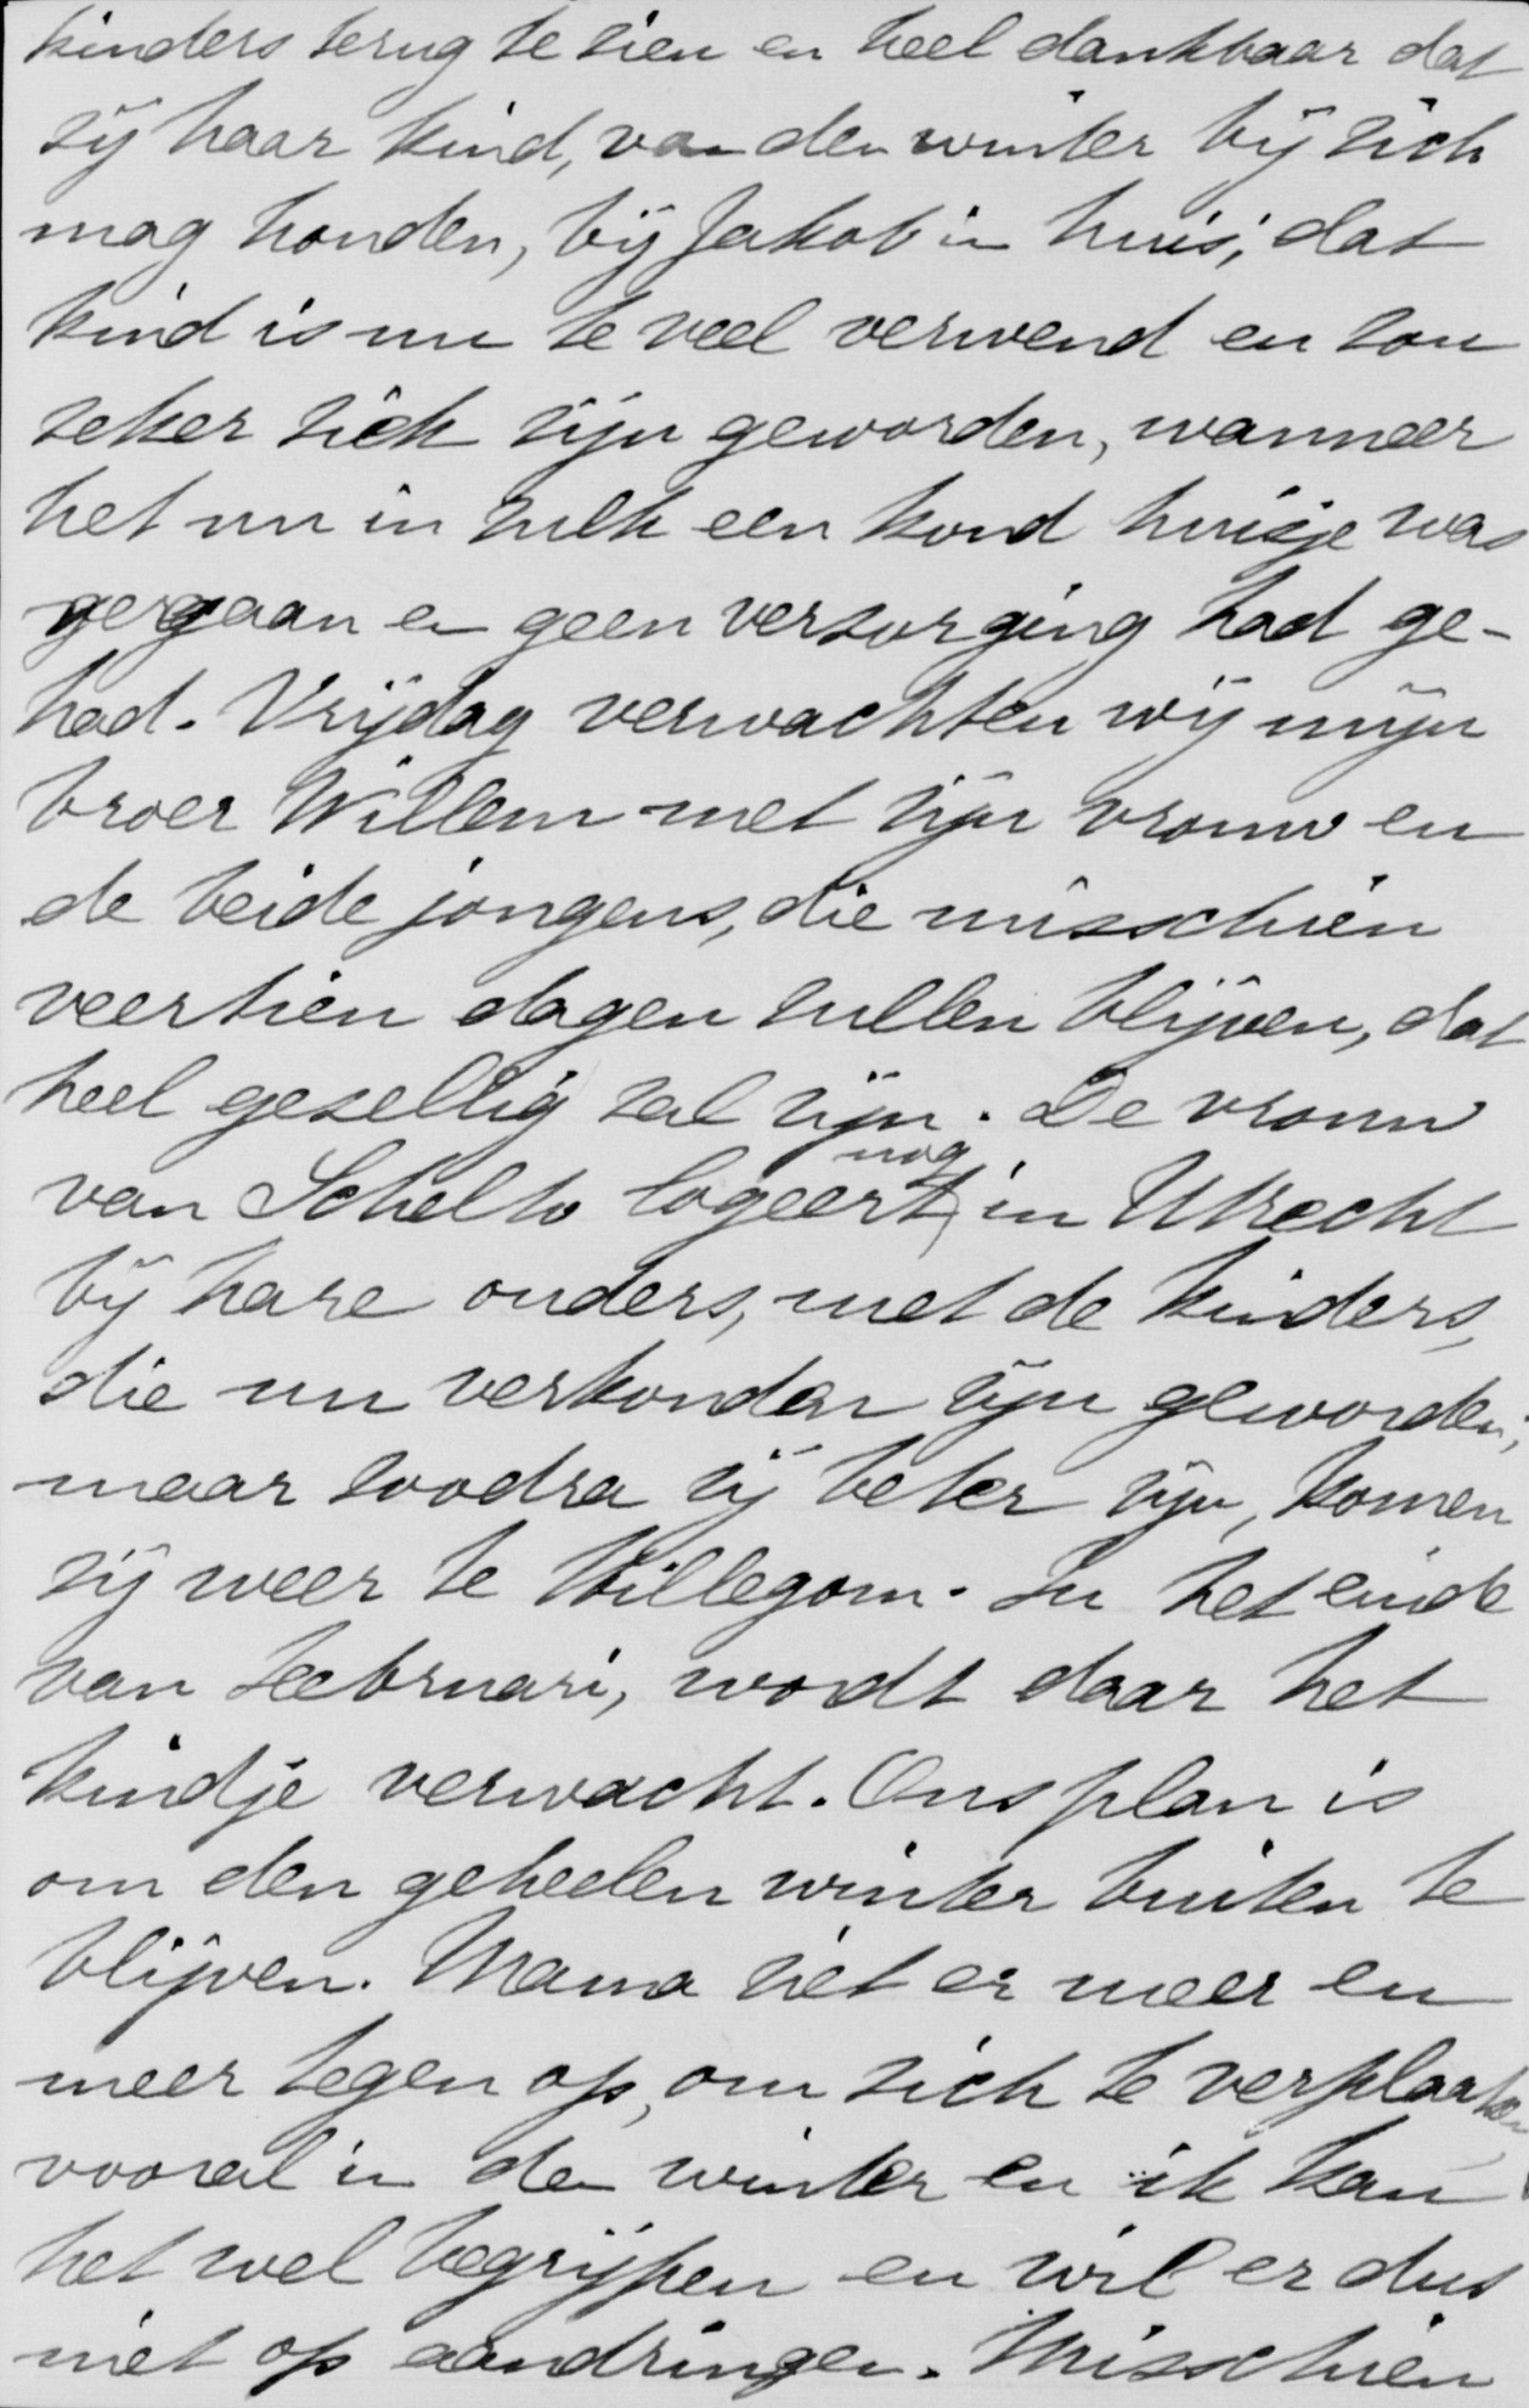 kinders terug te zien en heel dankbaar dat
zij haar kind, van den winter bij zich
mag houden, bij Jakob in huis; dat
kind is nu te veel verwend en zou
zeker ziek zijn geworden, wanneer
het nu in zulk een koud huisje was
gegaan en geen verzorging had ge-
had. Vrijdag verwachten wij mijn
broer Willem met zijn vrouw en
de beide jongens, die misschien
veertien dagen zullen blijven, dat
heel gezellig zal zijn. De vrouw
van Schelto logeert nog in Utrecht
bij hare ouders, met de kinders,
die nu verkouden zijn geworden;
maar zoodra zij beter zijn, komen
zij weer te Hillegom. In het einde
van Februari, wordt daar het
kindje verwacht. Ons plan is
om den geheelen winter buiten te
blijven. Mama ziet er meer en
meer tegen op, om zich te verplaatsen
vooral in den winter en ik kan
het wel begrijpen en wil er dus
niet op aandringen. Misschien